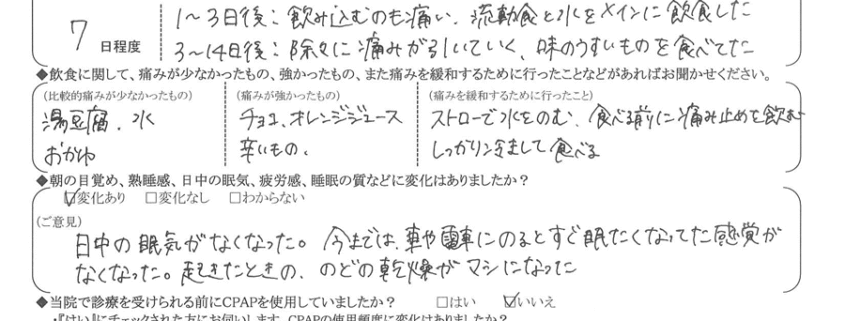 1〜3日後：飲み込むのも痛い、流動食と水をメインに飲食した
7 日程度
3〜14日後：除々に痛みが引いていく、味のうすいものを食べてた
◆飲食に関して、痛みが少なかったもの、強かったもの、また痛みを緩和するために行ったことなどがあればお聞かせください。
(比較的痛みが少なかったもの) (痛みが強かったもの) (痛みを緩和するために行ったこと)
湯豆腐、水 チョコ、オレンジジュース ストローで水をのむ、食べる前に痛み止めを飲む
おかゆ 辛いもの、 しっかり冷まして食べる
◆朝の目覚め、熟睡感、日中の眠気、疲労感、睡眠の質などに変化はありましたか？
☑変化あり □変化なし □わからない
(ご意見)
日中の眠気がなくなった。今までは、車や電車にのるとすぐ眠たくなってた感覚が
なくなった。起きたときの、のどの乾燥がマシになった
◆当院で診療を受けられる前にCPAPを使用していましたか？ □はい ☑いいえ
・『はい』にチェックされた方にお伺いします。CPAPの使用頻度に変化はありましたか？